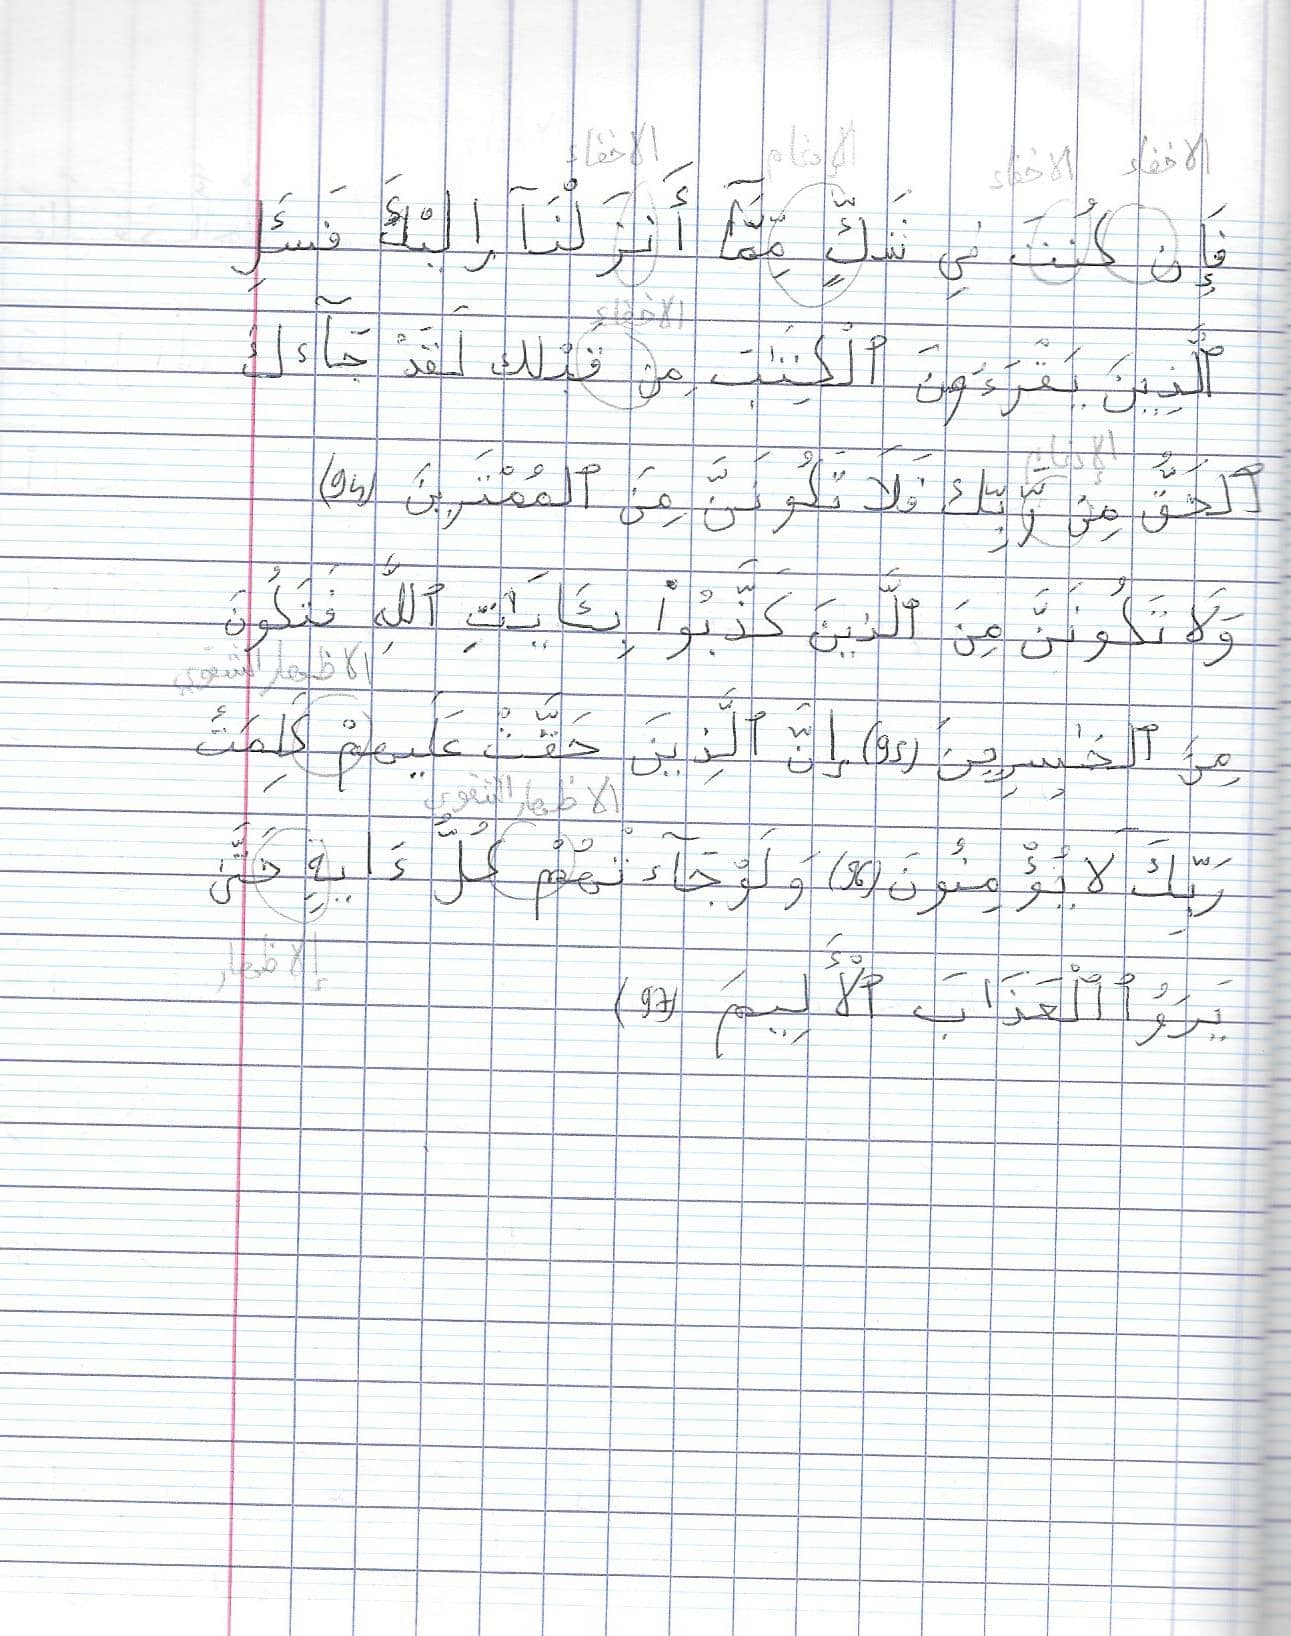 الاخفاء الاخفاء الإدغام الاخفاء
فَإِن كُنتَ فِي شَكٍّ مِّمَّآ أَنزَلْنَآ إِلَيْكَ فَسْـَٔلِ
الاخفاء
ٱلَّذِينَ يَقْرَءُونَ ٱلْكِتَٰبَ مِن قَبْلِك لَقَدْ جَآءَكَ
الإدغام
ٱلْحَقُّ مِن رَّبِّكَ فَلَا تَكُونَنَّ مِنَ ٱلمُمْتَرِينَ (94)
وَلَا تَكُونَنَّ مِنَ ٱلَّذِينَ كَذَّبُوا۟ بِـَٔايَٰتِ ٱللَّهِ فَتَكُونَ
الاظهار الشفوي
مِنَ ٱلخَٰسِرِينَ (95) إِنَّ ٱلَّذِينَ حَقَّتْ عَلَيهِمْ كَلِمَتُ
الاظهار الشفوي
رَبِّكَ لَا يُؤْمِنُونَ (96) وَلَوْ جَآءَتْهُمْ كُلُّ ءَايَةٍ حَتَّىٰ
إلاظهار
يَرَوُا ٱلْعَذَابَ ٱلْأَلِيمَ (97)